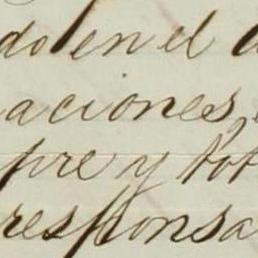 do en el
aciones,
pre y tot
responsa